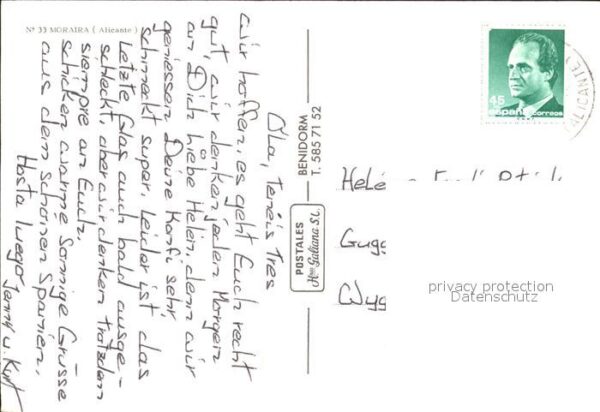 Nº 33 MORAIRA (Alicante)
Ola, Teneis Tres
wir hoffen, es geht Euch recht
gut, wir denken jeden Morgen
an Dich liebe Helen, denn wir
geniessen Deine Konfi sehr,
schmeckt super. Leider ist das
Letzte Glas auch bald ausge-
schleckt aber wir denken trotzdem
siempre an Euch,
schicken warme sonnige Grüsse
aus dem schönen Spanien,
Hasta luego, Jenny u. Kurt
BENIDORM
T. 585 71 52
POSTALES
Hnos Galiana S.L.
45
españa
correos
ALICANTE
Gugg
Wygg
privacy protection
Datenschutz